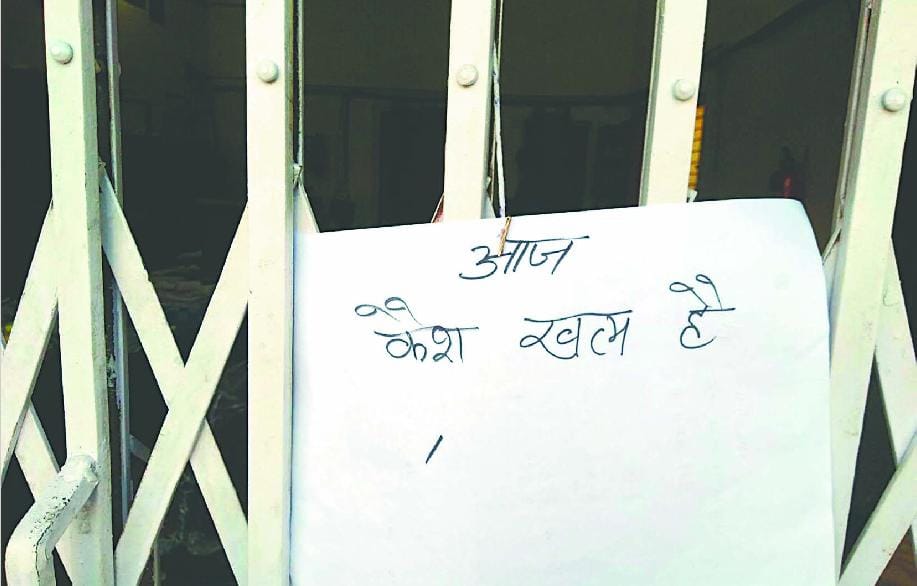 आज
कैश खत्म है